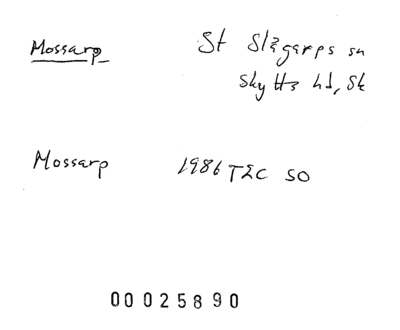 Mossarp St Slågarps sn
Skytts hd, Sk
Mossarp 1986 T2C SO
00025890